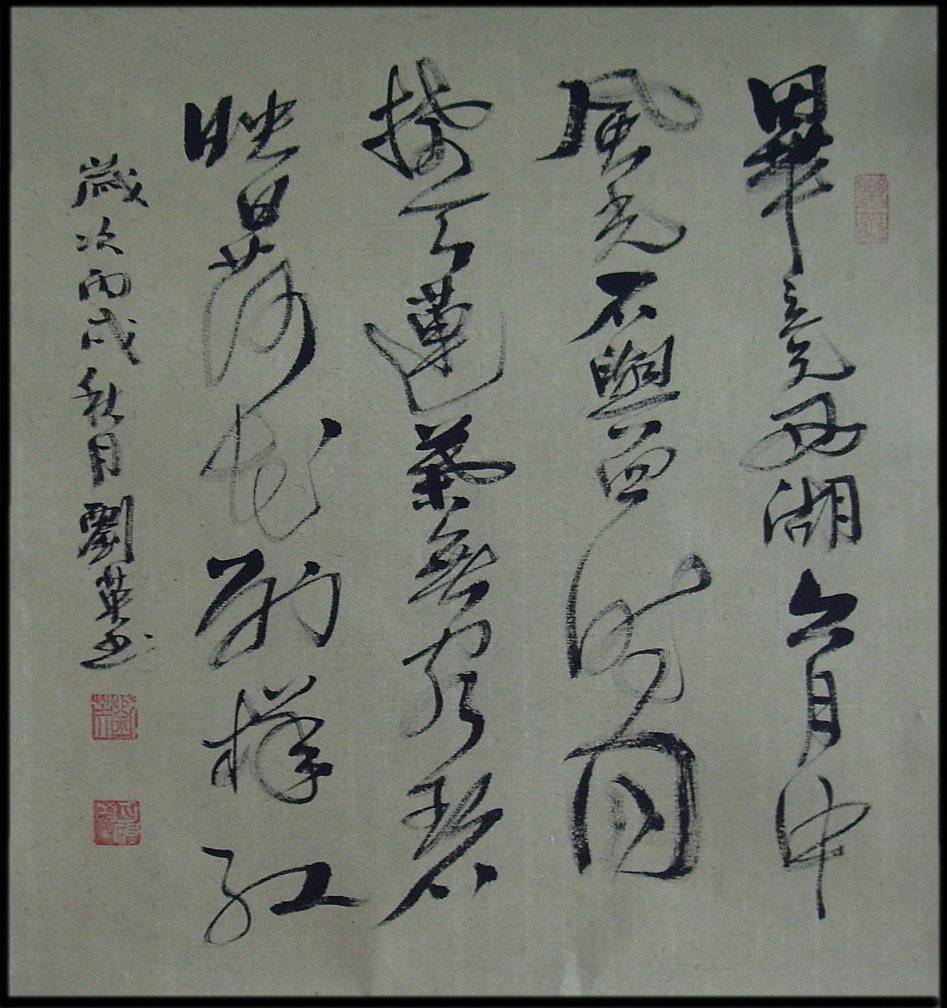 畢竟西湖六月中
風光不與四時同
接天蓮葉無窮碧
映日荷花別樣紅
歲次丙戌秋月劉英书